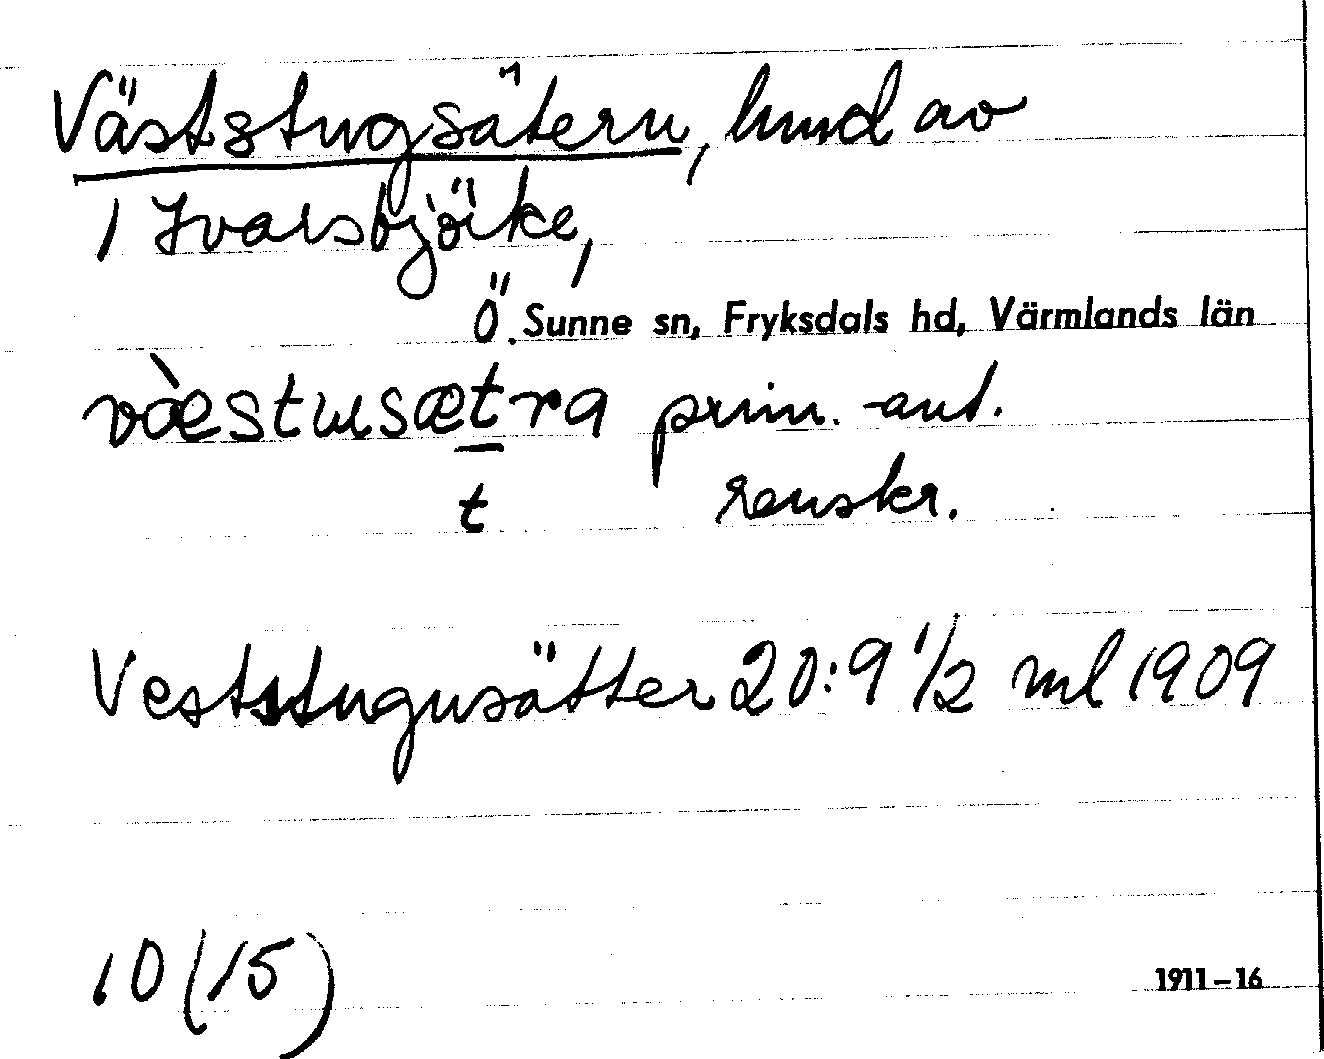 Väststugsätern, hmd av
1 Ivarsbjörke,
Ö. Sunne sn, Fryksdals hd, Värmlands län
væ̀stɯsætra prim.-ant.
t renskr.
Veststugusätter 20:9 1/2 ml 1909
10 (15)
1911-16